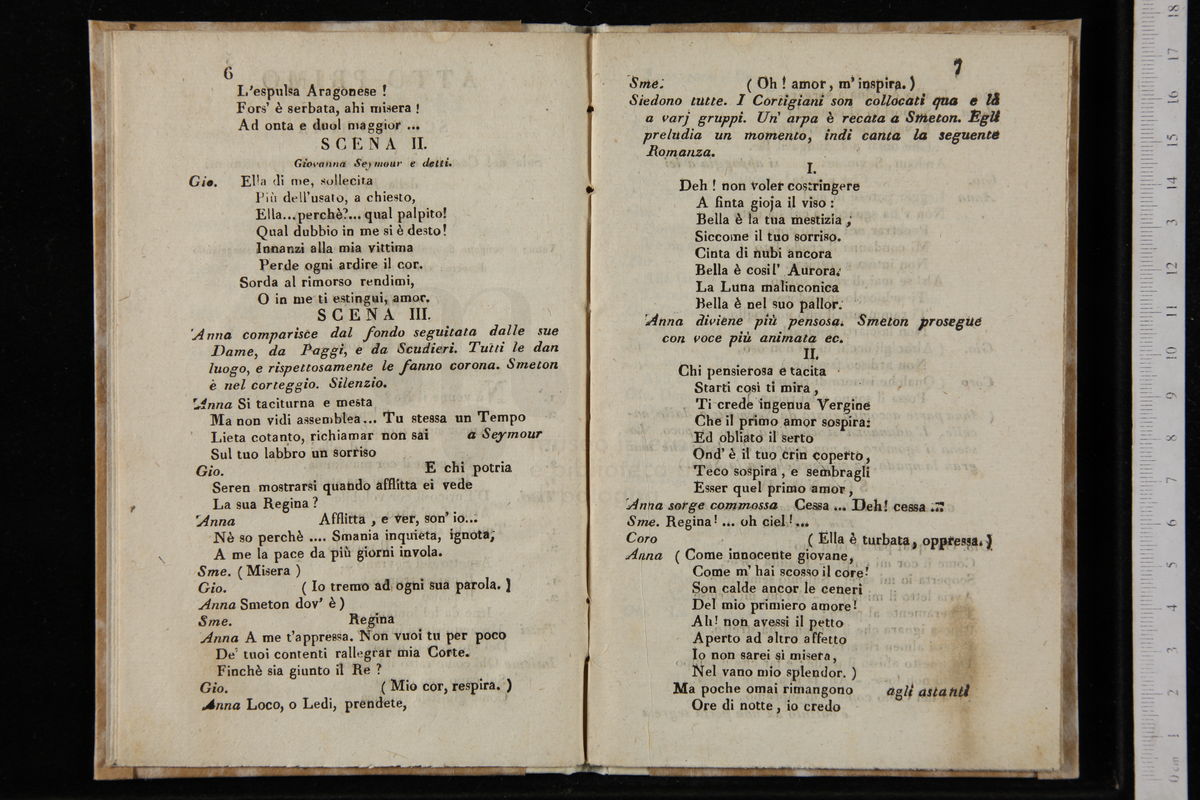 6
L'espulsa Aragonese !
Fors' è serbata, ahi misera !
Ad onta e duol maggior ...
SCENA II.
Giovanna Seymour e detti.
Gio. Ella di me, sollecita
Più dell'usato, a chiesto,
Ella...perchè?... qual palpito!
Qual dubbio in me si è desto!
Innanzi alla mia vittima
Perde ogni ardire il cor.
Sorda al rimorso rendimi,
O in me ti estingui, amor.
SCENA III.
Anna comparisce dal fondo seguitata dalle sue
Dame, da Paggi, e da Scudieri. Tutti le dan
luogo, e rispettosamente le fanno corona. Smeton
è nel corteggio. Silenzio.
Anna Si taciturna e mesta
Ma non vidi assemblea... Tu stessa un Tempo
Lieta cotanto, richiamar non sai a Seymour
Sul tuo labbro un sorriso
Gio. E chi potria
Seren mostrarsi quando afflitta ei vede
La sua Regina ?
Anna Afflitta , e ver, son' io...
Nè so perchè .... Smania inquieta, ignota,
A me la pace da più giorni invola.
Sme. ( Misera )
Gio. ( Io tremo ad ogni sua parola. )
Anna Smeton dov' è )
Sme. Regina
Anna A me t'appressa. Non vuoi tu per poco
De' tuoi contenti rallegrar mia Corte.
Finchè sia giunto il Re ?
Gio. ( Mio cor, respira. )
Anna Loco, o Ledi, prendete,
7
Sme. ( Oh ! amor, m' inspira. )
Siedono tutte. I Cortigiani son collocati qua e là
a varj gruppi. Un' arpa è recata a Smeton. Egli
preludia un momento, indi canta la seguente
Romanza.
I.
Deh ! non voler costringere
A finta gioja il viso :
Bella è la tua mestizia ;
Siccome il tuo sorriso.
Cinta di nubi ancora
Bella è così l' Aurora.
La Luna malinconica
Bella è nel suo pallor.
Anna diviene più pensosa. Smeton prosegue
con voce più animata ec.
II.
Chi pensierosa e tacita
Starti così ti mira ,
Ti crede ingenua Vergine
Che il primo amor sospira:
Ed obliato il serto
Ond' è il tuo crin coperto,
Teco sospira , e sembragli
Esser quel primo amor ,
Anna sorge commossa Cessa ... Deh! cessa ...
Sme. Regina! ... oh ciel!...
Coro ( Ella è turbata, oppressa. )
Anna ( Come innocente giovane,
Come m' hai scosso il core!
Son calde ancor le ceneri
Del mio primiero amore!
Ah! non avessi il petto
Aperto ad altro affetto
Io non sarei sì misera,
Nel vano mio splendor. )
Ma poche omai rimangono agli astanti
Ore di notte , io credo